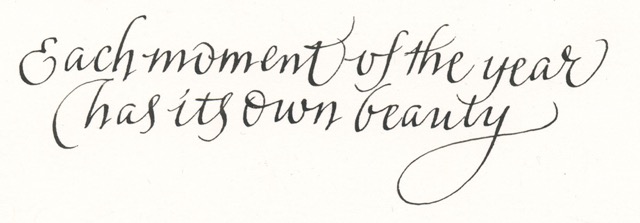 Each moment of the year
has its own beauty